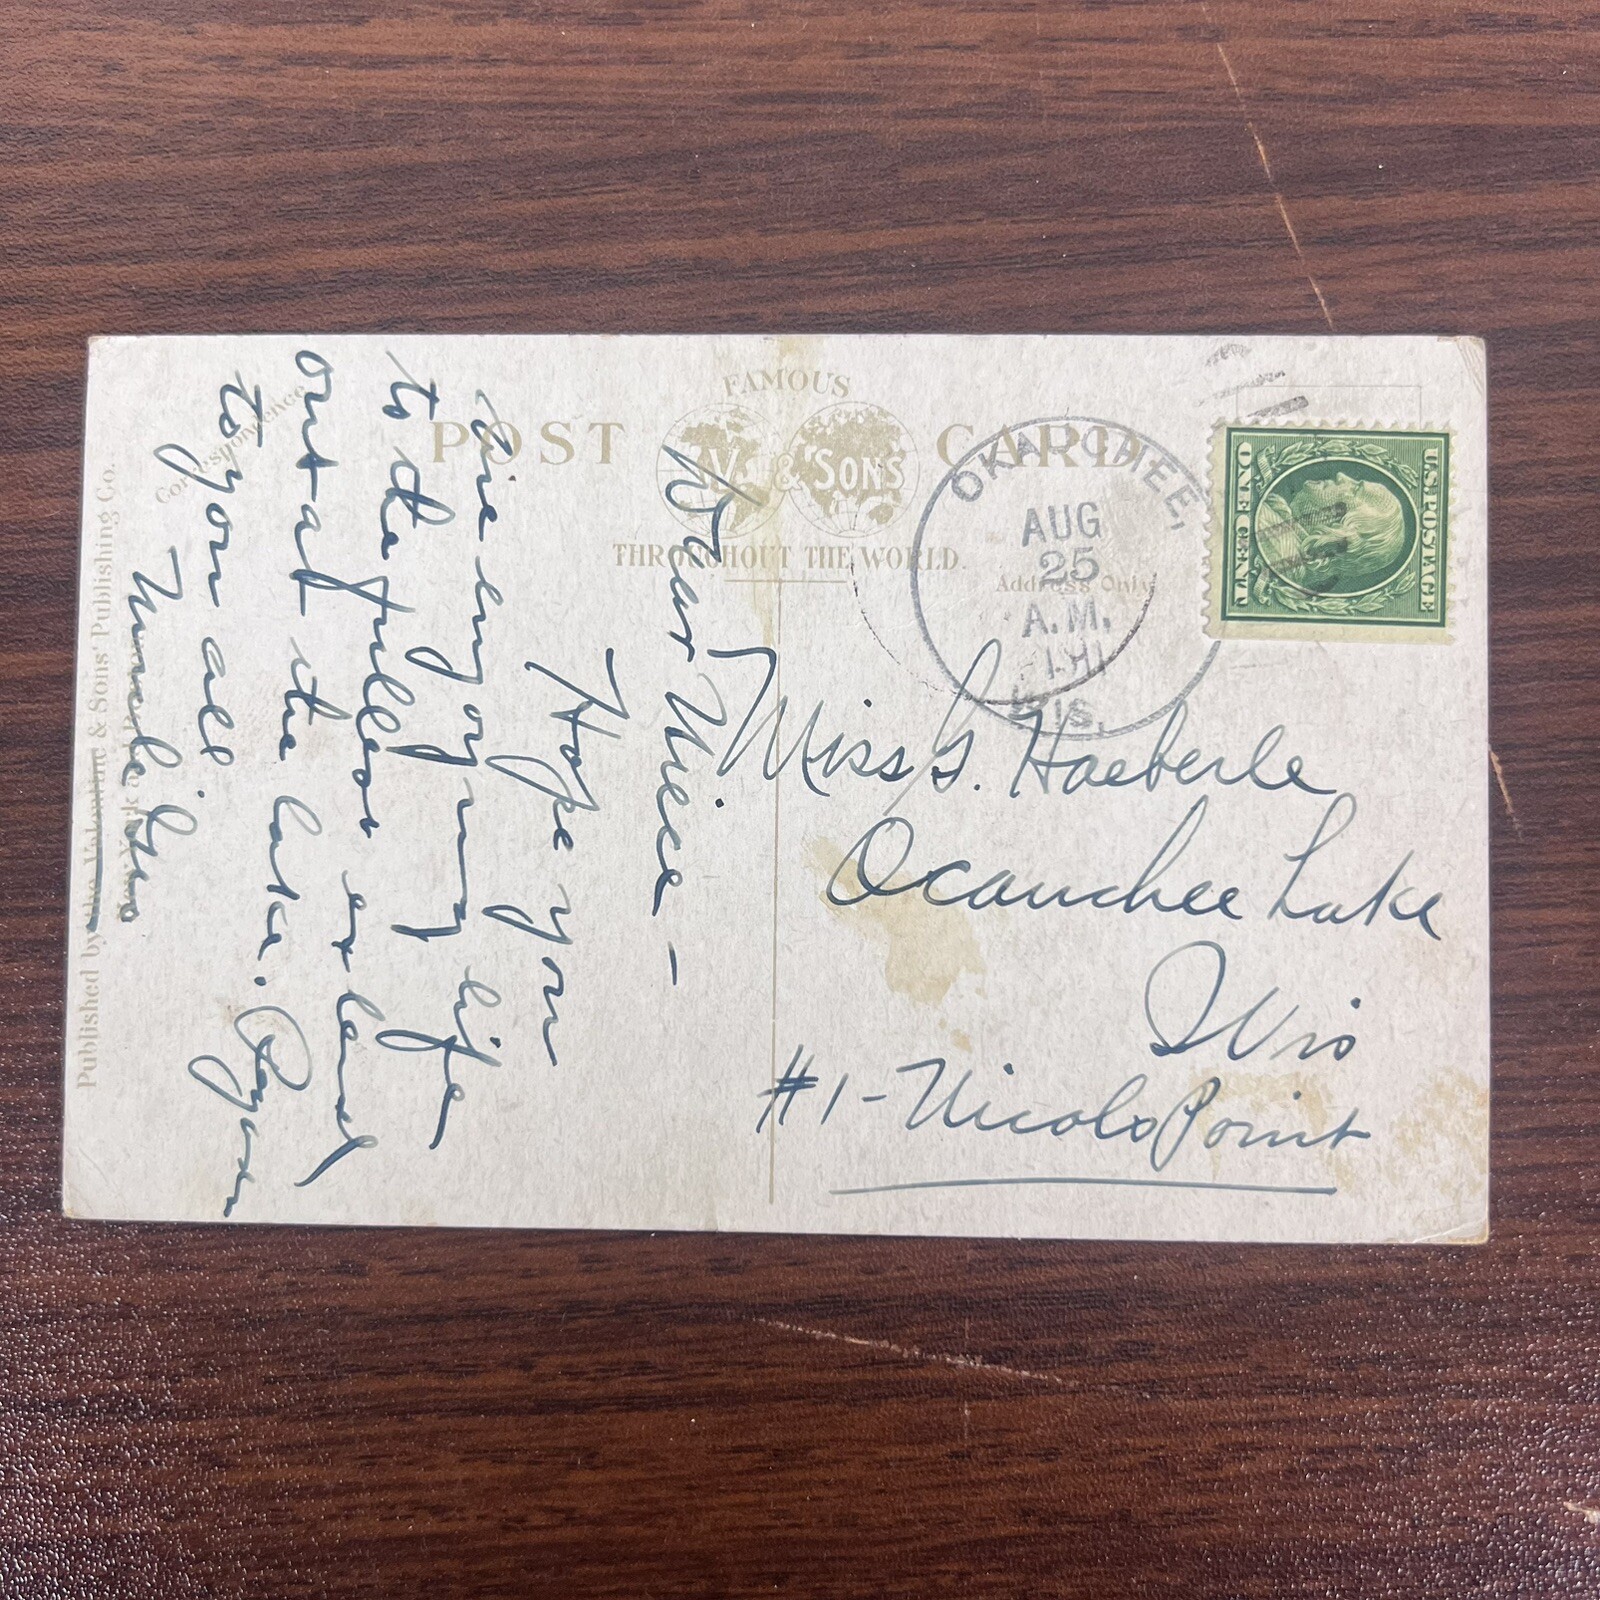 FAMOUS
POST CARD
V. & SONS
THROUGHOUT THE WORLD.
Correspondence
Address Only
OKAUCHEE,
AUG
25
A.M.
191
WIS.
U.S. POSTAGE
ONE CENT
Dear Niece —
Hope you
are enjoying life
to the fullest extent
out at the lake. Regards
to you all.
Uncle Gus
Miss G. Haeberle
Ocauchee Lake
Wis
#1 - Nicols Point
Published by the Valentine & Sons' Publishing Co.